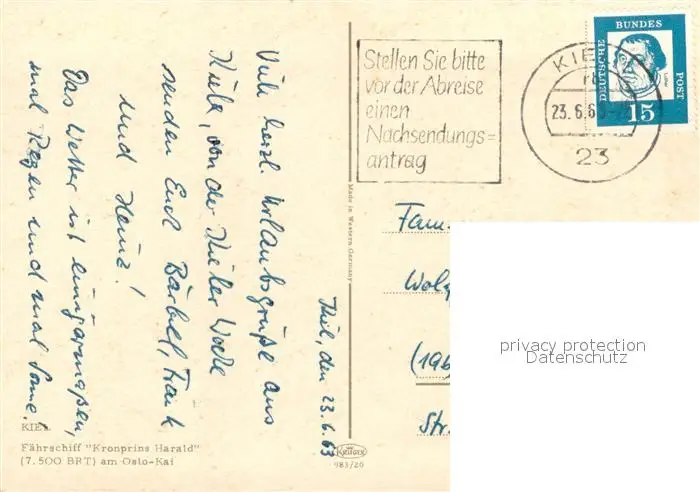 Kiel, den 23.6.63
Viele herzl. Urlaubsgrüße aus
Kiel, von der Kieler Woche
senden Euch Bärbel, Frank
und Heinz!
Das Wetter ist einigermaßen,
mal Regen und mal Sonne!
KIEL
Fährschiff "Kronprins Harald"
(7.500 BRT) am Oslo-Kai
Made in Western Germany
Krüger
983/20
Stellen Sie bitte
vor der Abreise
einen
Nachsendungs=
antrag
KIEL
23.6.63
23
DEUTSCHE
BUNDES
POST
15
Fam.
(196
Str.
privacy protection
Datenschutz